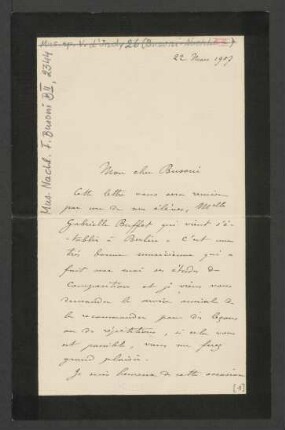 Mus. Nachl. F. Busoni B II, 2344
22 Mars 1907
Mon cher Busoni
Cette lettre vous sera remise
par une de mes élèves, Melle
Gabrielle Buffet qui vient s'é-
tablir à Berlin. C'est une
très bonne musicienne qui a
fait avec moi ses études de
Composition et je viens vous
demander le service amical de
la recommander pour des leçons
ou de répétitions, si cela vous
est possible, vous me ferez
grand plaisir.
Je suis heureux de cette occasion
[1]